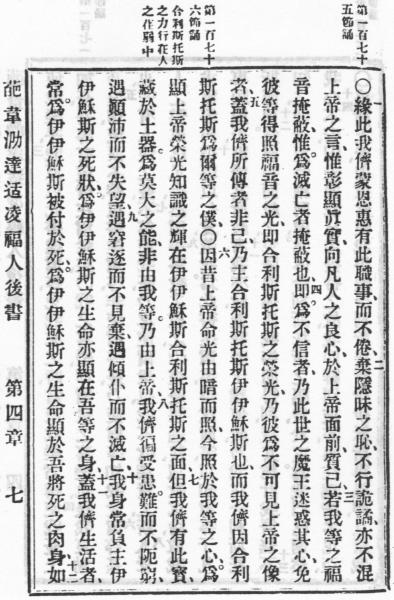 第一百七十
五節誦
第一百七十
六節誦
合利斯托斯
之力行在人
之作弱中
一
○緣此我儕蒙恩惠有此職事而不倦棄隱昧之恥不行詭譎亦不混
二
上帝之言惟彰顯眞實向凡人之良心於上帝面前質己若我等之福
三
音掩蔽惟爲滅亡者掩蔽也卽爲不信者乃此世之魔王迷惑其心免
四
彼等得照福音之光卽合利斯托斯之榮光乃彼爲不可見上帝之像
五
者蓋我儕所傳者非己乃主合利斯托斯伊伊穌斯也而我儕因合利
斯托斯爲爾等之僕○因昔上帝命光由暗而照今照於我等之心爲
六
顯上帝榮光知識之輝在伊伊穌斯合利斯托斯之面但我儕有此寶
七
藏於土器爲莫大之能非由我等乃由上帝我儕徧受患難而不阨窮
八
遇顚沛而不失望遇窘逐而不見棄遇傾仆而不滅亡我身常負主伊
九
十
伊穌斯之死狀爲伊伊穌斯之生命亦顯在吾等之身蓋我儕生活者
十一
常爲伊伊穌斯被付於死爲伊伊穌斯之生命顯於吾將死之肉身如
十二
葩韋泐達适凌福人後書
第四章
七